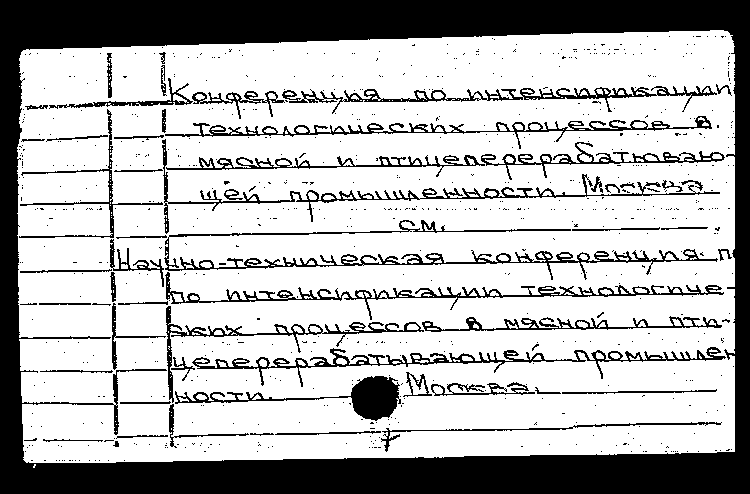 Конференция по интенсификации
технологических процессов в
мясной и птицеперерабатываю-
щей промышленности. Москва
см.
Научно-техническая конференция по
по интенсификации технологиче-
ских процессов в мясной и пти-
цеперерабатывающей промышлен
ности. Москва.